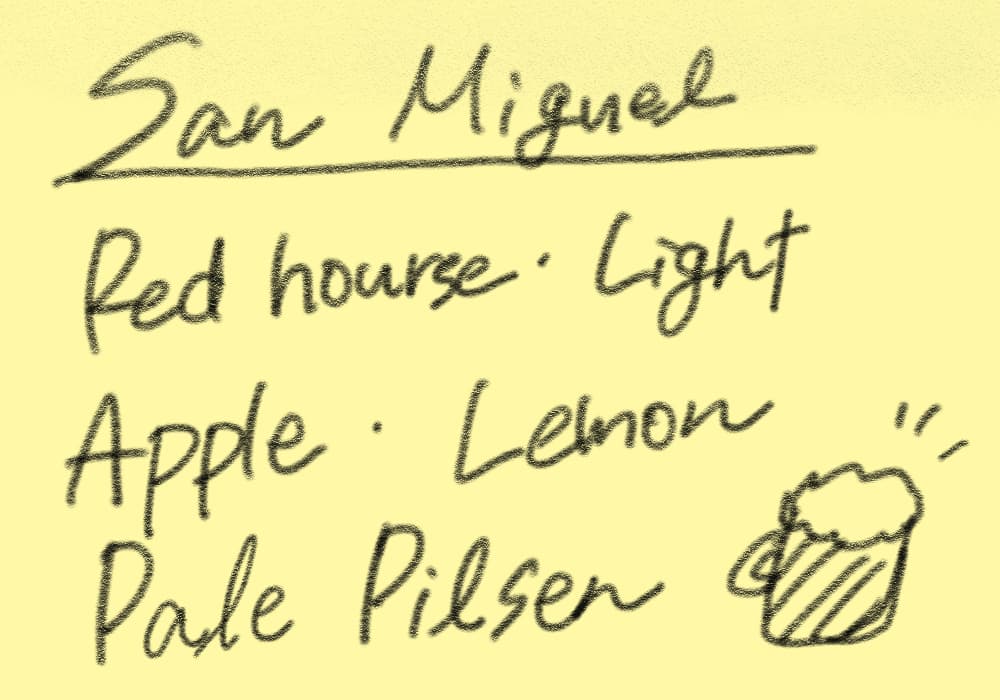 San Miguel
Red hourse · Light
Apple · Lemon
Pale Pilsen